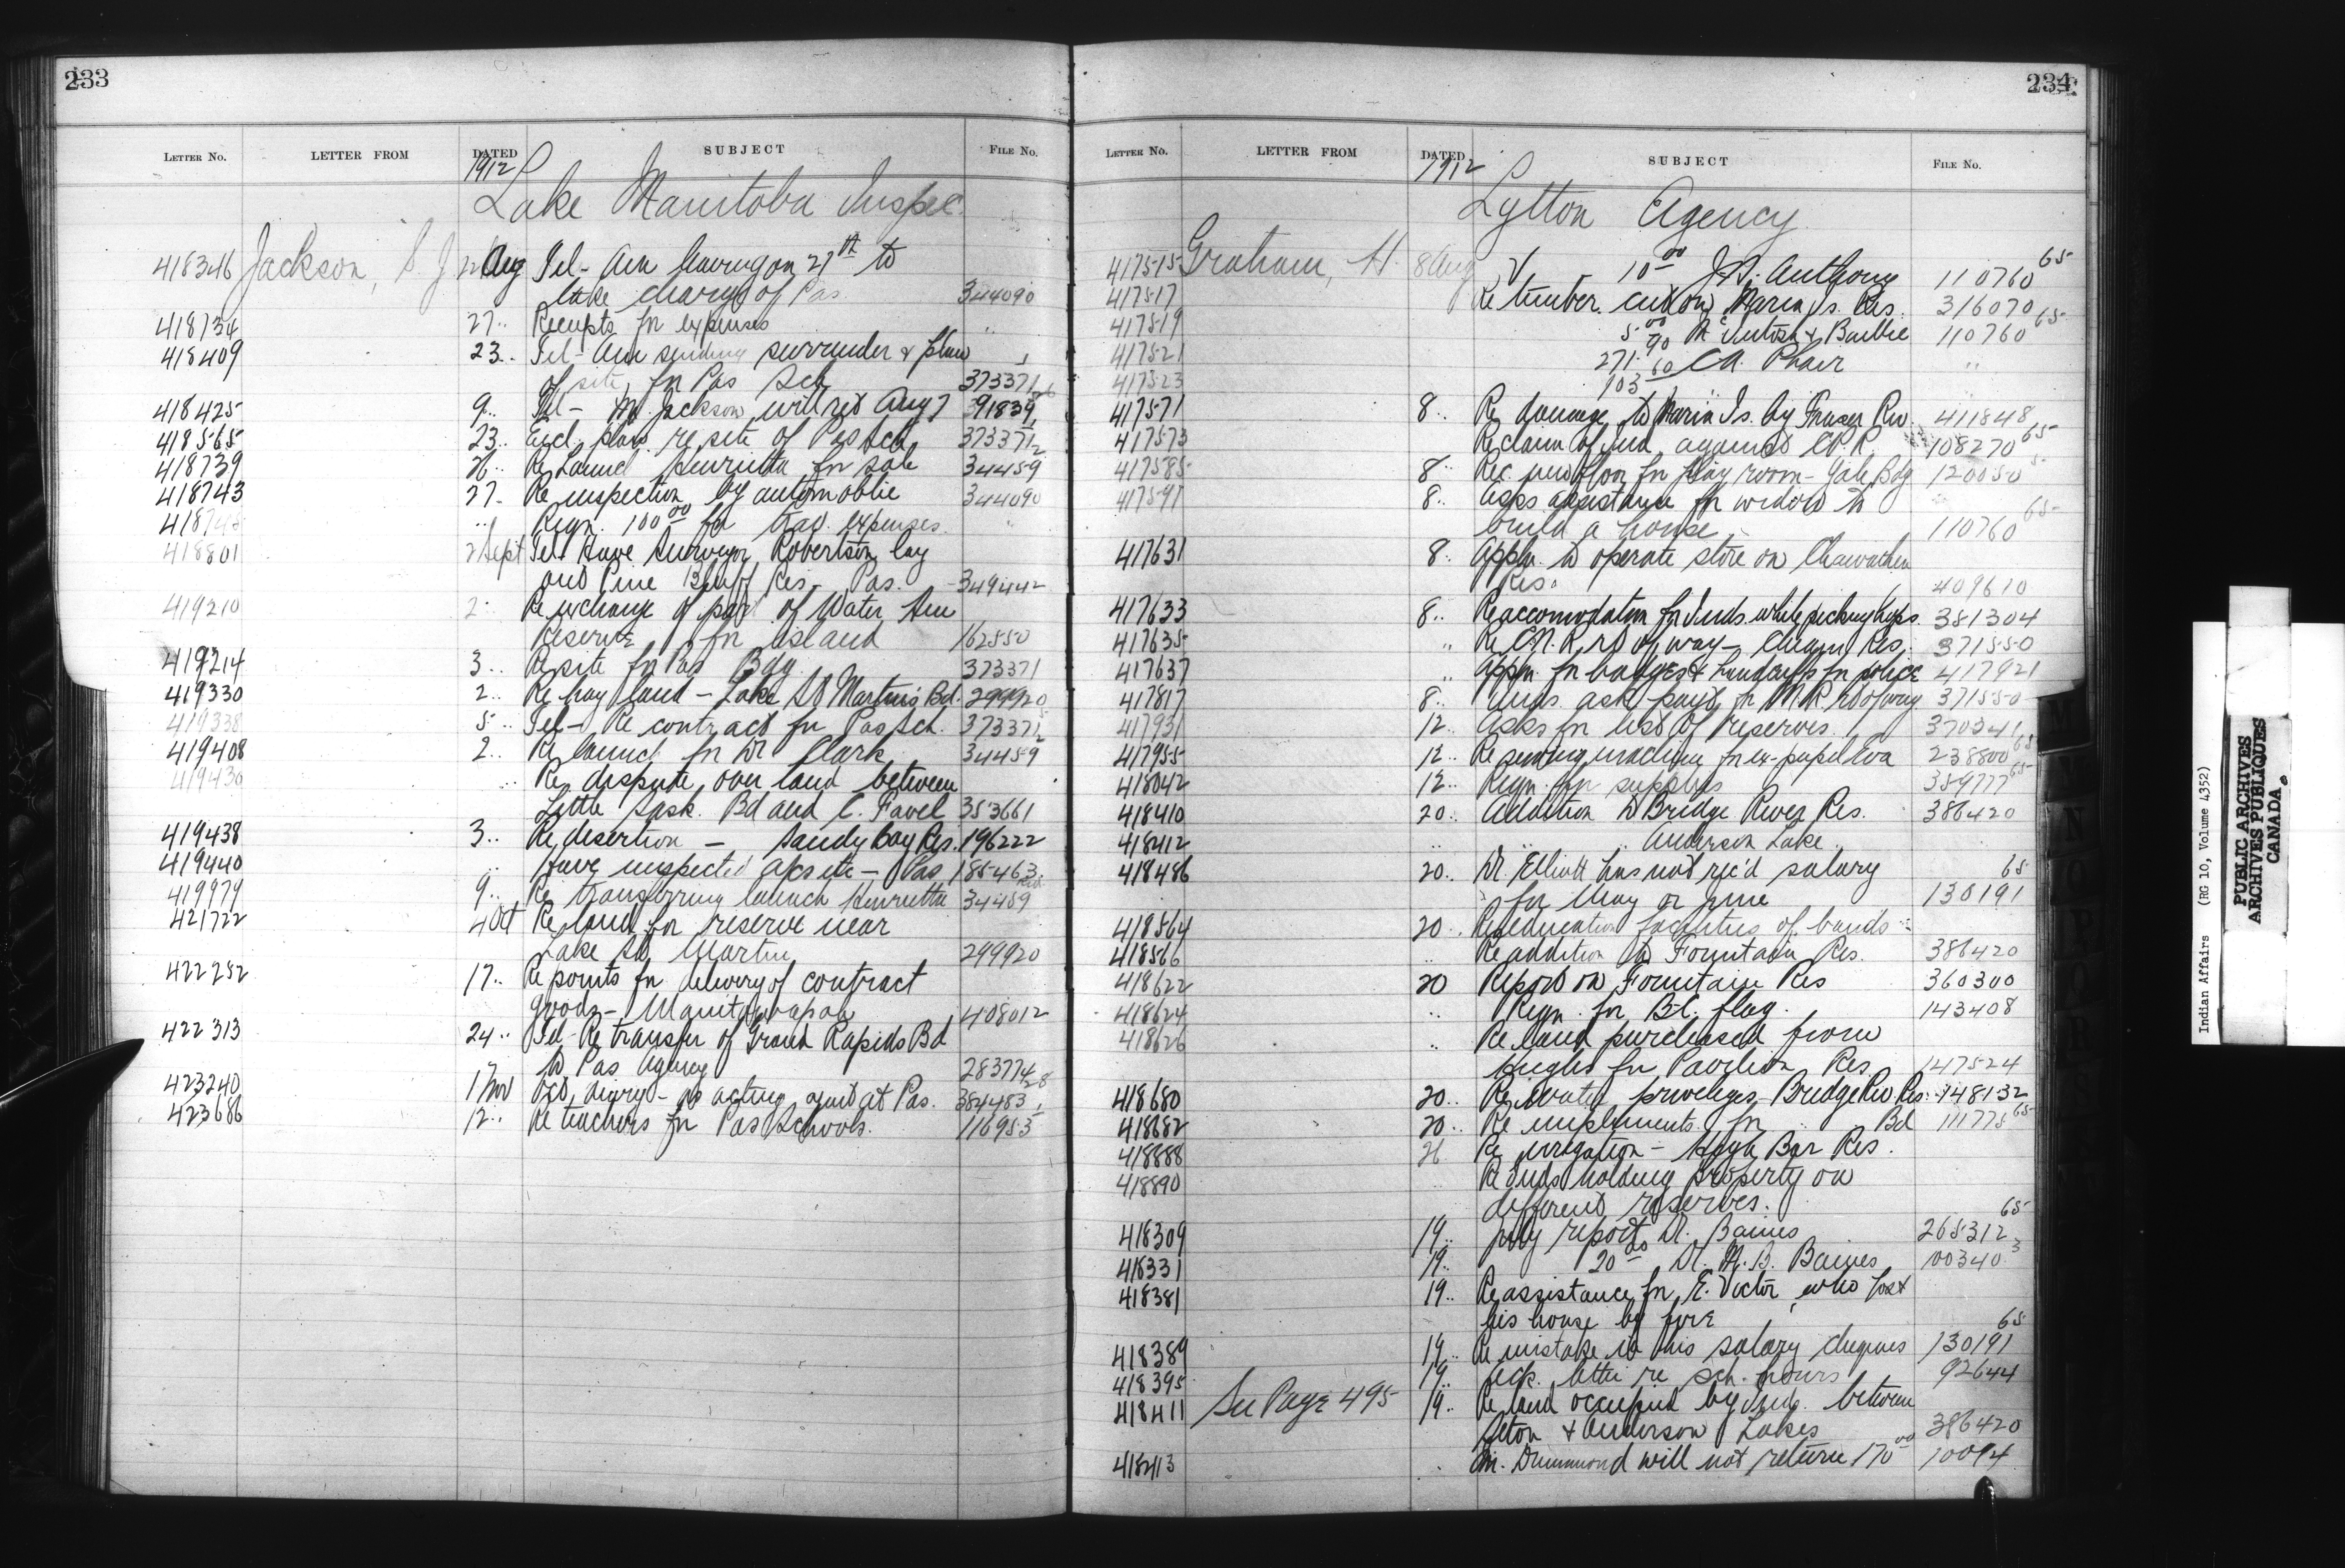 233
LETTER NO. LETTER FROM DATED SUBJECT FILE NO.
1912
Lake Manitoba Inspec
418346 Jackson, S. J. Aug Tel - Am leaving on 27th to
take charge of Pas 344090
418734 27 .. Receipts for expenses "
418409 23 .. Tel - Am sending surrender & plan
of site for Pas Sch 373371
418425 9 .. Tel - Mr Jackson will ret Aug 7 91839
418565 23 .. Encl. plan re site of Pas Sch 373371
418739 26 .. Re Launch Henrietta for sale 34459
418743 27 .. Re inspection by automobile 344090
.. Reqn. 100.00 for trav. expenses "
418801 2 Sept Tel Have Surveyor Robertson lay
out Pine Bluff Res - Pas. 349442
419210 2 .. Re exchange of part of Water Hen
Reserve for island 162550
419214 3 .. Re site for Pas Bdg 373371
419330 2 .. Re hay land - Lake St Martin's Bd. 299920
419338 5 .. Tel - Re contract for Pas Sch. 373371
419408 2 .. Re launch for Dr Clark 34459
419436 .. Re dispute over land between
Little Sask. Bd and C. Favel 353661
419438 3 .. Re desertion - Sandy Bay Res. 196222
419440 .. Have inspected site - Pas 185463
419979 9 .. Re transferring launch Henrietta 34459
421722 4 Oct Re land for reserve near
Lake St Martin 299920
422252 17 .. Re points for delivery of contract
goods - Manitowapah 408012
422313 24 .. Tel - Re transfer of Grand Rapids Bd
to Pas Agency 283774
423240 1 Nov Oct. diary - as acting agent at Pas. 384483
423686 12 .. Re teachers for Pas Schools. 116953
234
LETTER NO. LETTER FROM DATED SUBJECT FILE NO.
1912
Lytton Agency
417515 Graham, H. 8 Aug V - 10.00 J.R. Anthony 110760 65
417517 Re timber cut on Maria Is. Res. 316070
417519 5.00 McIntosh & Barbie 110760 65
417521 271.90 C.A. Phair "
417523 103.60 "
417571 8 .. Re damage to Maria Is. by Fraser Riv. 411848
417573 Re claim of Ind against C.P.R. 108270 65
417585 8 .. Rec. new floor for play room - Yale Bdg 120050
417597 8 .. Asks assistance for widow to
build a house 110760 65
417631 8 .. Appln. to operate store on Chawathen
Res. 409610
417633 8 .. Re accomodation for Inds. while picking hops. 381304
417635 .. Re C.N.R. rt of way - Cheam Res. 371550
417637 .. Appln. for badges & handcuffs for police 417921
417817 8 .. Inds. ask payt for rt of way 371550
417931 12 .. Asks for list of reserves. 370341
417955 12 .. Re sewing machine for ex-pupil Eva 238800 65
418042 12 .. Reqn. for supplies 359777 65
418410 20 .. Addition to Bridge River Res. 386420
418412 .. .. .. Anderson Lake ..
418486 20 .. Dr. Elliott has not rec'd salary
for May or June 130191 65
418564 20 .. Re education facilities of bands ..
418566 .. Re addition to Fountain Res. 386420
418622 20 Report on Fountain Res 360300
418624 .. Reqn. for B.C. flag. 143408
418626 .. Re land purchased from
Hughes for Pavilion Res. 147524
418680 20 .. Re water priveleges, Bridge Riv. Res. 148132
418682 20 .. Re implements for .. Bd 111775 65
418888 26 Re irrigation - High Bar Res.
418890 Re Inds holding property on
different reserves.
418309 19 .. July report Dr. Baines 265312 65
418331 19 .. 20.00 Dr. M.B. Baines 100340 3
418381 19 .. Re assistance for E. Victor, who lost
his house by fire
418389 19 .. Re mistake in his salary cheques 130191 65
418395 19 .. Ack. letter re sch. hours 92644
418411 See Page 495 19 .. Re land occupied by Inds. between
Seton & Anderson Lakes 386420
418413 .. M. Drummond will not return 170.00 10094
Indian Affairs (RG 10, Volume 4352)
PUBLIC ARCHIVES
ARCHIVES PUBLIQUES
CANADA